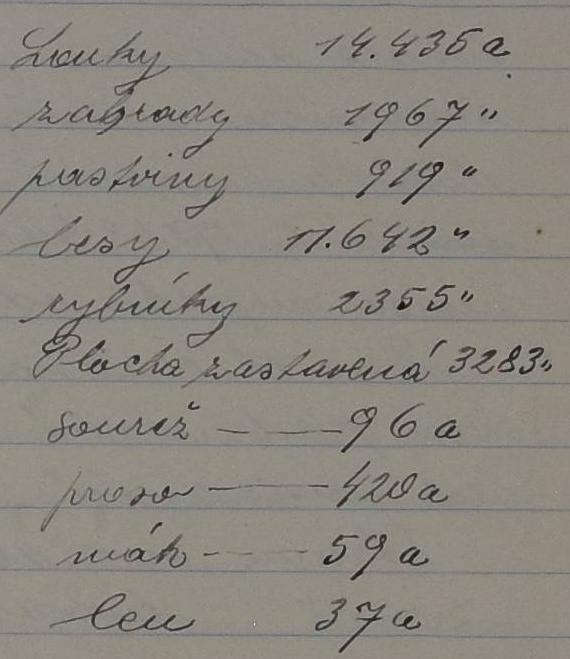 Louky 14.435 a
zahrady 1967 "
pastviny 919 "
lesy 11.642 "
rybníky 2355 "
Plocha zastavená 3283 "
souręž — — 96 a
proso — — 420 a
mák - — 59 a
len 37 a